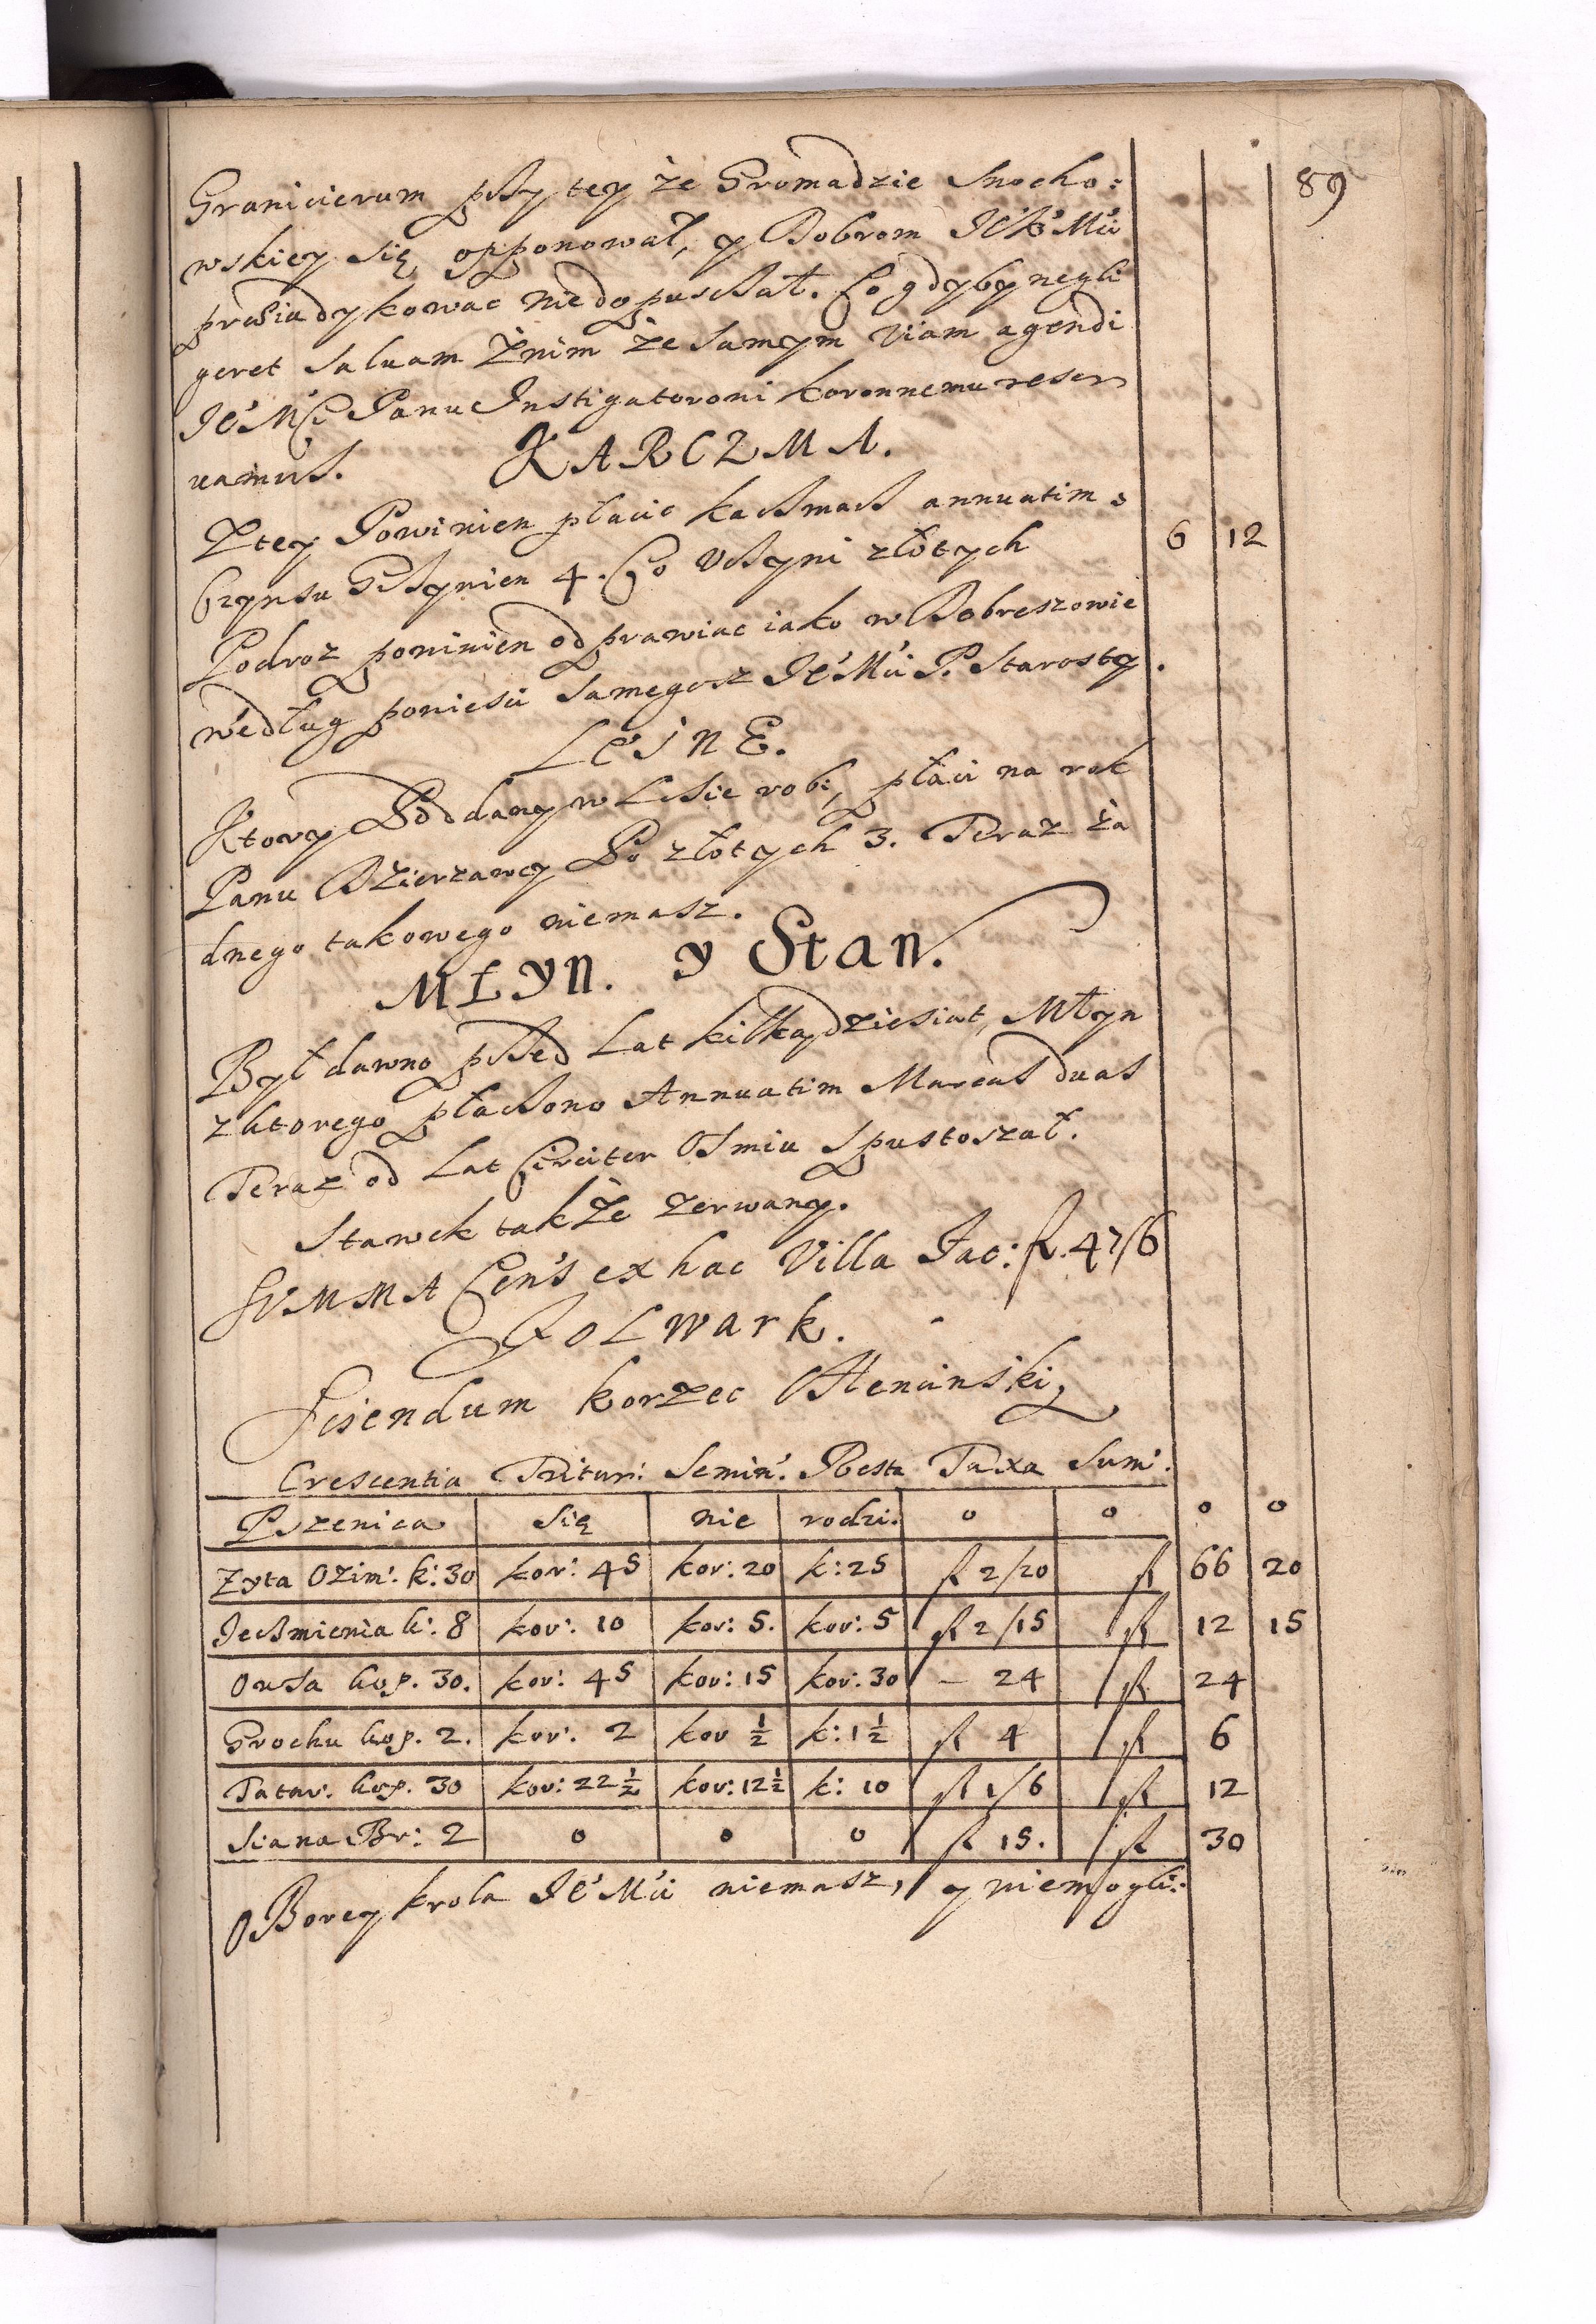 89
Granicierum pszy tey że Gromadzie Snocho:
wskiey się opponował, y Dobrom JeKMci
praeiudykowac niedopuscSał. Co gdyby negli
geret saluam żnim że samym viam agendi
JeMCi Panu Instigatoroni koronnemu reser
uamus. KARCZMA.
Ztey Powinien płacic kaczmasz annuatim
Czynszu Grzywien 4. Co Vczyni złotych 6 12
Podroz powinien odprawiac iako w Dobreszowie
według poniesci samegosz JeMci P. Starosty.
LeśnE.
Ktory Poddany w Lesie robi, płaci na rok
Panu Dzierzawcy Po złotych 3. Teraz ża
dnego takowego niemasz.
MŁYN. y Staw.
Był dawno pszed Lat kilkądziesiat, Młyn
z ktorego płaczono Annuatim Marcas duas
Teraz od Lat Circiter Osmiu Spustoszał.
Stawek także zerwany.
SVMMA Cens ex hac Villa Fac: fl. 47/6
FOLWark.
Sciendum korzec Chencinski
Crescentia Tritur: Semin: Resta Taxa Sum:
Pszenica się nie rodzi. o o o o
Zyta Ozim: k: 30 kor: 45 kor: 20 k: 25 fl 2/20 fl 66 20
Jeczmienia k: 8 kor: 10 kor: 5. kor: 5 fl 2/15 fl 12 15
Owsa kop. 30. kor: 45 kor: 15 kor: 30 – 24 fl 24
Grochu kop. 2. kor: 2 kor ½ k: 1½ fl 4 fl 6
Tatar: kop. 30 kor: 22½ kor: 12½ k: 10 fl 1/6 fl 12
Siana Br: 2 o o o fl 15. fl 30
OBorey krola JeMci niemasz, y niemogli: